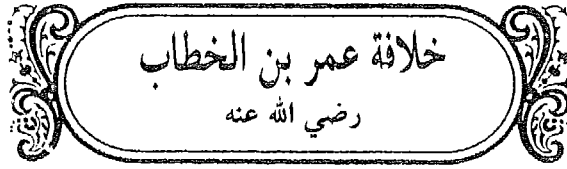 خلافة عمر بن الخطاب
رضي الله عنه